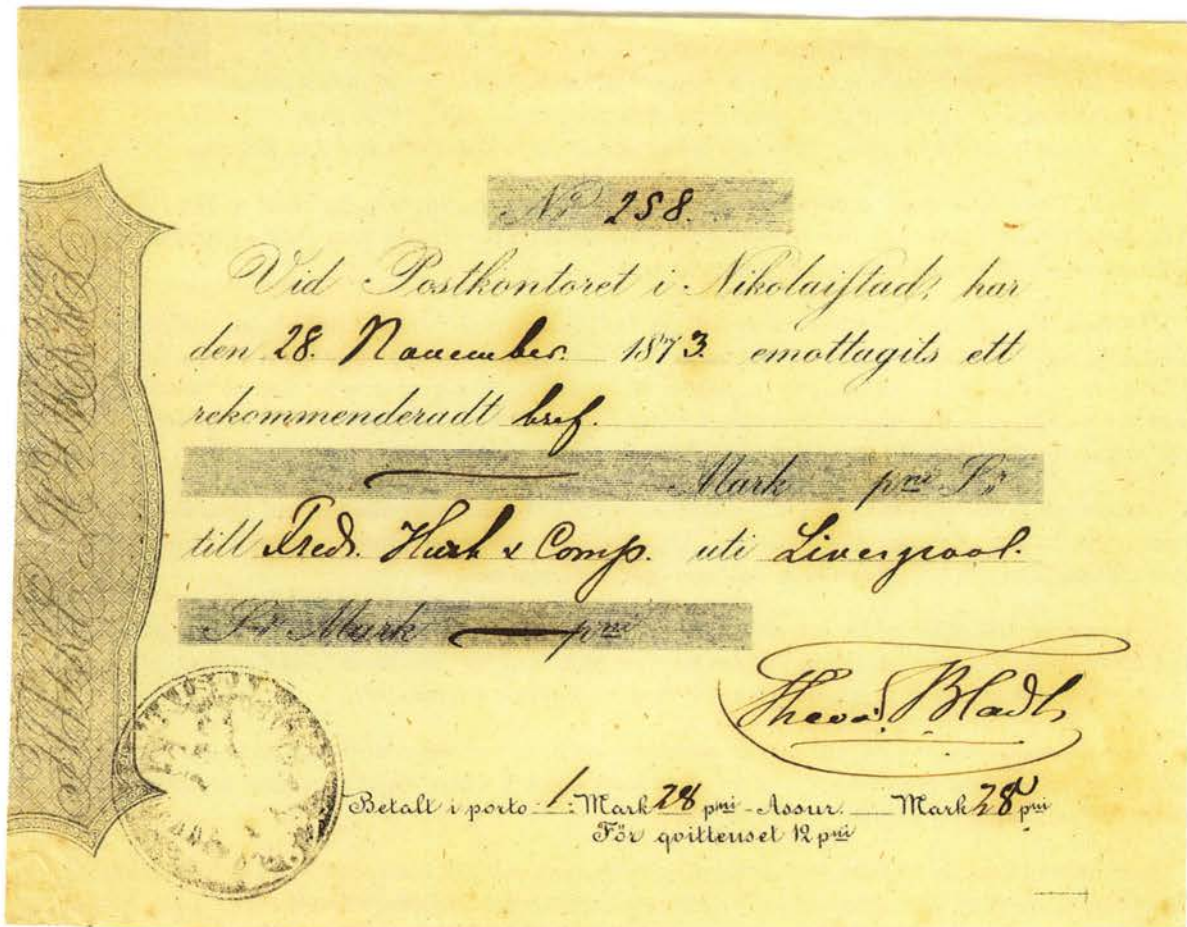 No 258.
Vid Postkontoret i Nikolaistad, har
den 28. November. 1873. emottagits ett
rekommenderadt bref.
Mark pni Sr
till Fredr. Huth & Comp. uti Liverpool.
Sr Mark pni
Theod. Bladh
Betalt i porto 1: Mark 28 pni - Assur. Mark 28 pni
För qvittenset 12 pni